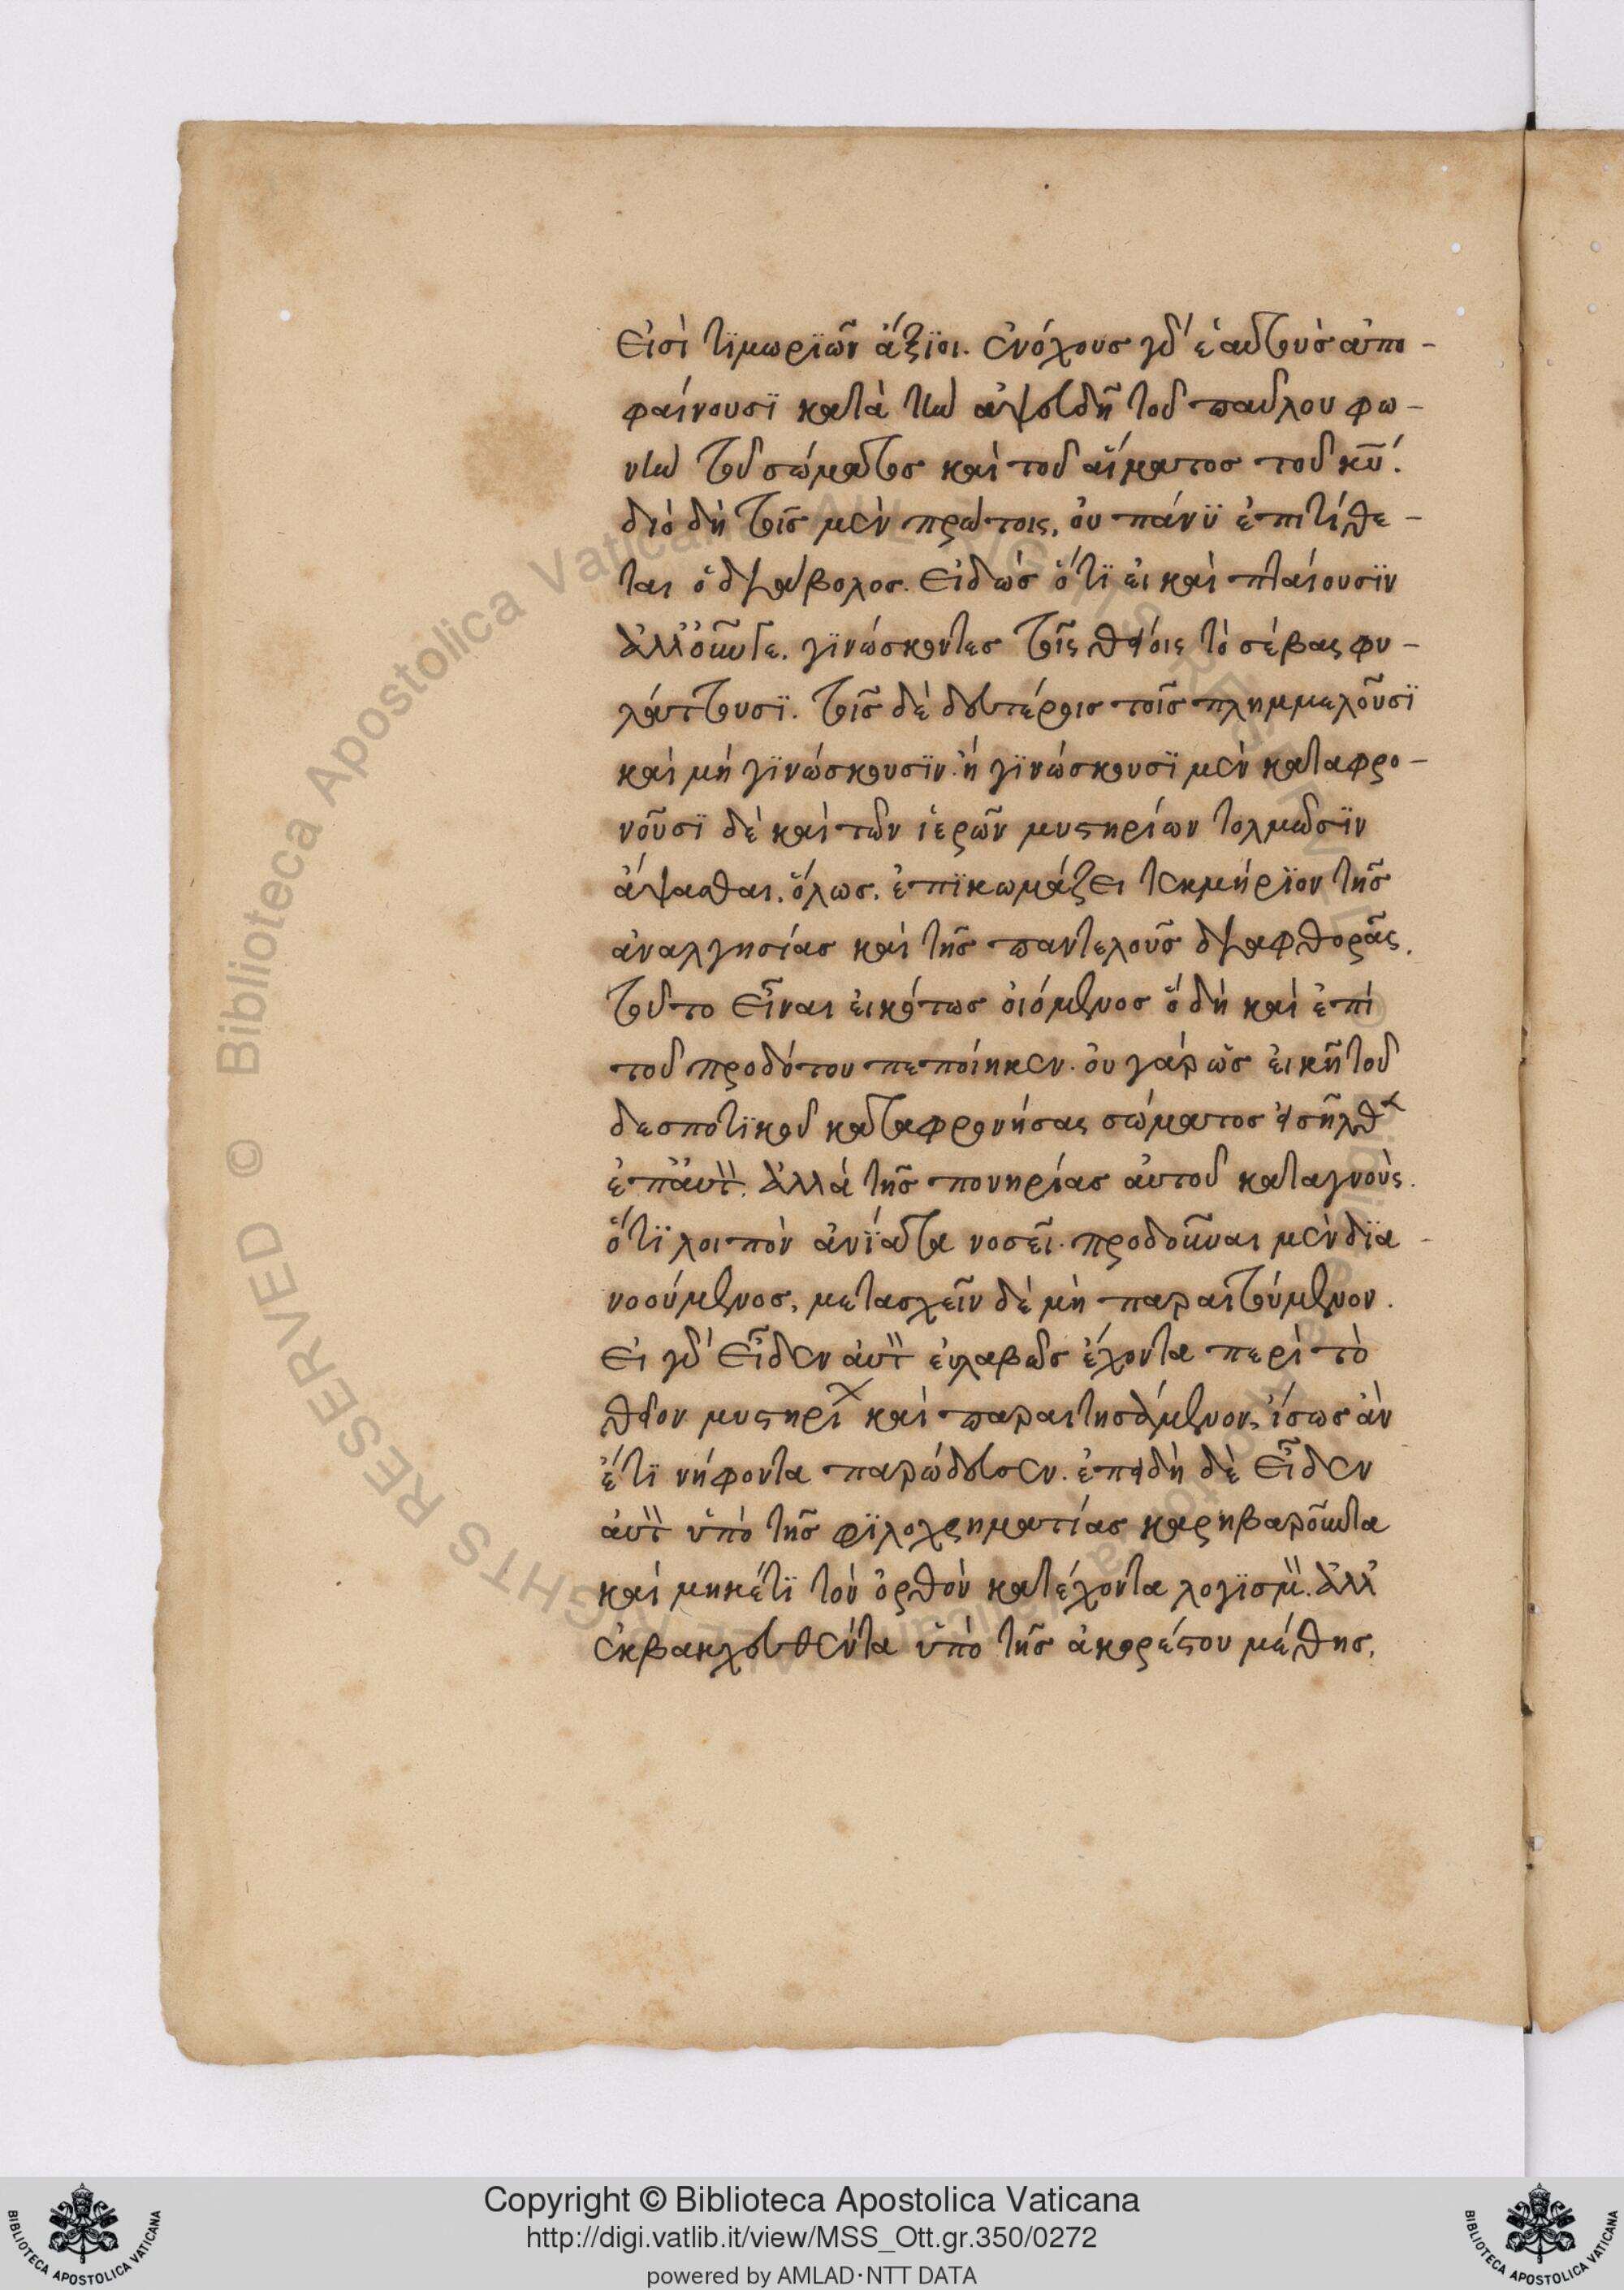 εἰσὶ τϊμωρϊῶν ἄξϊοι. ἐνόχους γὰρ ἑαυτοὺσ ἀπο-
φαίνουσϊ κατὰ τὴν ἀψευδῆ τοῦ παύλου φω-
νὴν τοῦ σώματος καὶ τοῦ αἵματος τοῦ κ̅υ̅.
διὸ δὴ τοῖς μὲν πρώτοις, οὐ πάνϋ ἐπιτίθε-
ται ὁ διάβολος. εἰδὼς ὅτϊ εἰ καὶ πταίουσϊν
ἀλλ' οὖν τε. γϊνώσκοντες τοῖς θείοις τὸ σέβας φυ-
λάττουσϊ. τοῖς δὲ δευτέροις τοῖς πλημμελοῦσϊ
καὶ μὴ γϊνώσκουσϊν. ἢ γϊνώσκουσϊ μὲν καταφρο-
νοῦσϊ δὲ καὶ τῶν ἱερῶν μυστηρίων τολμῶσϊν
ἅψασθαι, ὅλως, ἐπϊκωμάζει τεκμήρϊον τῆς
ἀναλγησίας καὶ τῆς παντελοῦς διαφθορᾶς.
τοῦτο εἶναι εἰκότως οἰόμενος ὃ δὴ καὶ ἐπὶ
τοῦ προδότου πεποίηκεν. οὐ γὰρ ὡς εἰκῆ τοῦ
δεσποτϊκοῦ καταφρονήσας σώματος εἰσῆλθεν
ἐπ' αὐτόν. ἀλλὰ τῆς πονηρίας αὐτοῦ καταγνοὺς.
ὅτϊ λοιπὸν ἀνϊατα νοσεῖ. προδοῦναι μὲν δϊα-
νοούμενος, μετασχεῖν δὲ μὴ παραιτούμενον.
εἰ γὰρ εἶδεν αὐτὸν εὐλαβῶς ἔχοντα περὶ τὸ
θεῖον μυστήριον καὶ παραιτησάμενον, ἴσως ἂν
ἔτϊ νήφοντα παρώδευσεν. ἐπειδὴ δὲ εἶδεν
αὐτὸν ὑπὸ τῆς φϊλοχρηματίας καρηβαροῦντα
καὶ μηκέτϊ τὸν ὀρθὸν κατέχοντα λογϊσμόν. ἀλλ'
ἐκβακχευθέντα ὑπὸ τῆς ἀκορέστου μέθης,
Copyright © Biblioteca Apostolica Vaticana
http://digi.vatlib.it/view/MSS_Ott.gr.350/0272
powered by AMLAD·NTT DATA
BIBLIOTECA APOSTOLICA VATICANA
BIBLIOTECA APOSTOLICA VATICANA
© Biblioteca Apostolica Vaticana ALL RIGHTS RESERVED